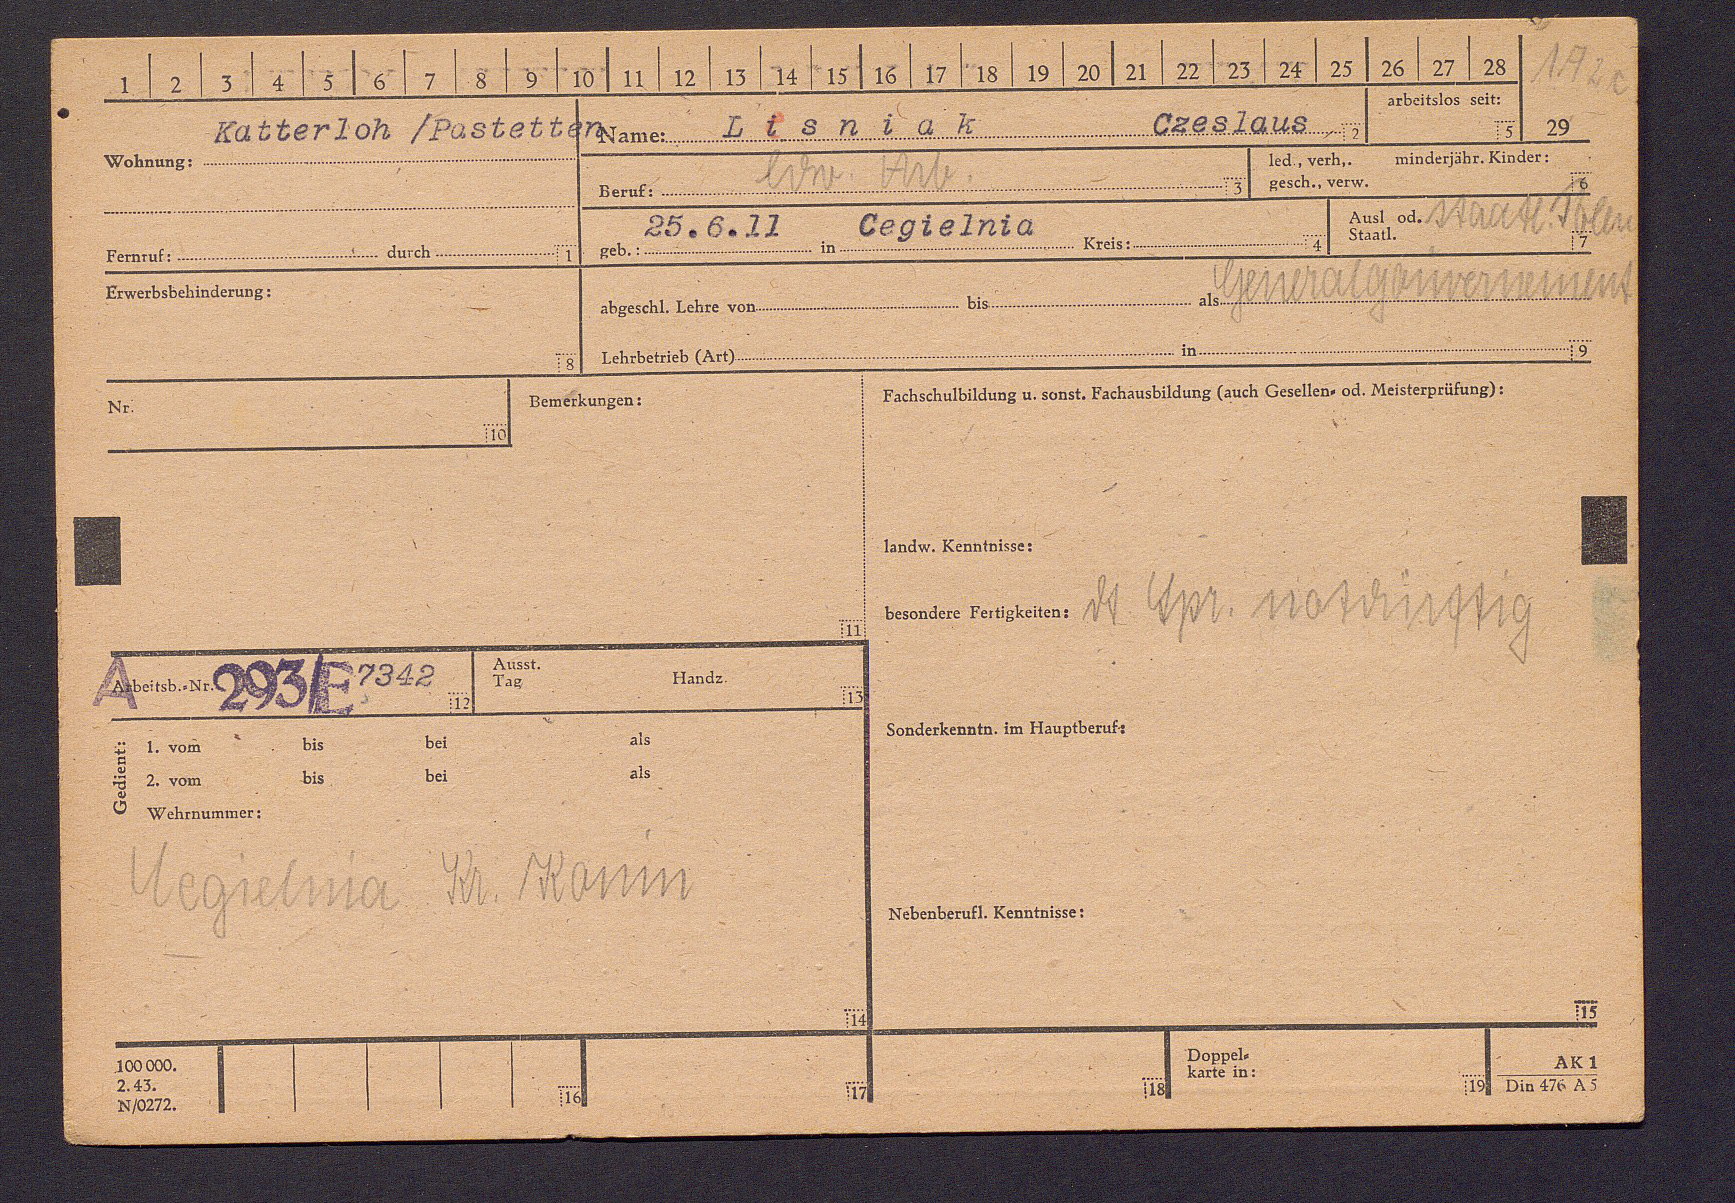 1 2 3 4 5 6 7 8 9 10 11 12 13 14 15 16 17 18 19 20 21 22 23 24 25 26 27 28
arbeitslos seit: 5
29
Katterloh /Pastetten
Wohnung:
Fernruf: durch 1
Name: Lisniak Czeslaus 2
Beruf: ldw. Arb. 3
led., verh,. minderjähr. Kinder:
gesch., verw. 6
geb.: 25.6.11 in Cegielnia Kreis: 4
Ausl od. staatl. Polen
Staatl. 7
Erwerbsbehinderung:
8
Generalgouvernement
abgeschl. Lehre von bis als
Lehrbetrieb (Art) in 9
Nr.
10
Bemerkungen:
11
Fachschulbildung u. sonst. Fachausbildung (auch Gesellen- od. Meisterprüfung):
landw. Kenntnisse:
besondere Fertigkeiten: dt Spr. notdürftig
Sonderkenntn. im Hauptberuf:
Nebenberufl. Kenntnisse:
15
A
Arbeitsb.-Nr. 293/E 7342 12
Ausst.
Tag Handz. 13
Gedient:
1. vom bis bei als
2. vom bis bei als
Wehrnummer:
Cegielnia Kr. Konin
14
100 000.
2. 43.
N/0272.
16
17
18
Doppel-
karte in: 19
AK 1
Din 476 A 5